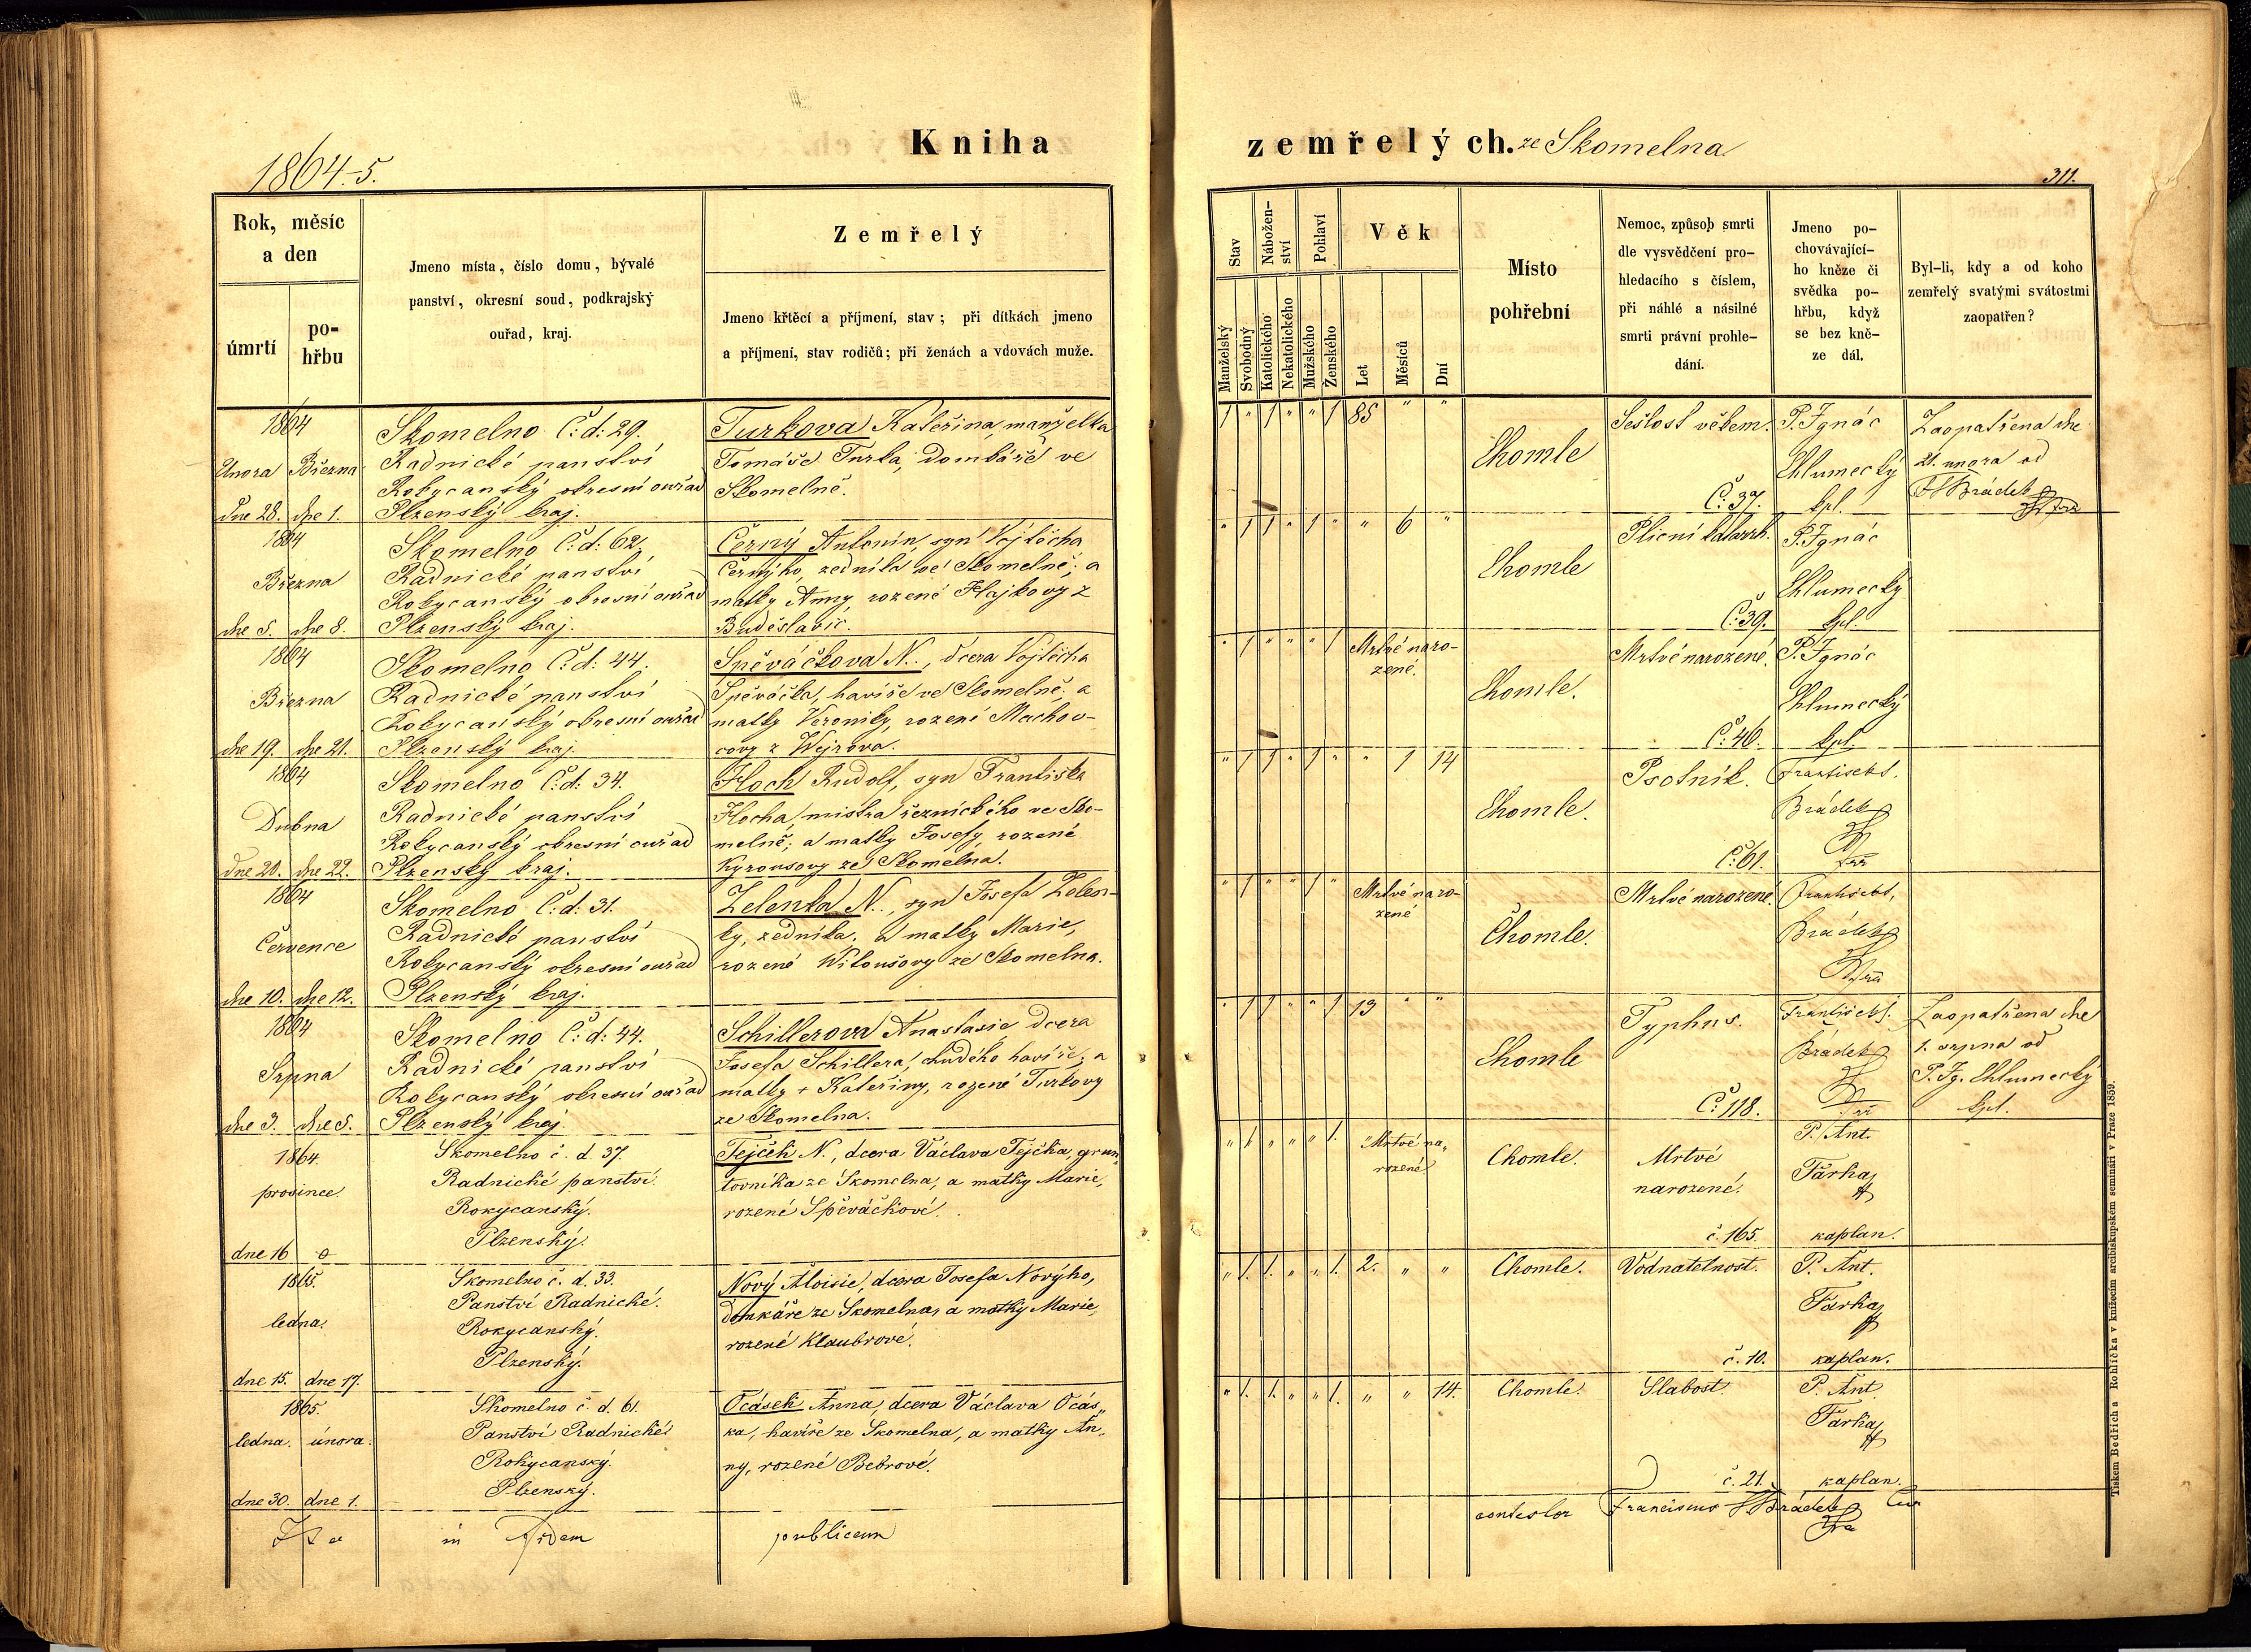 Kniha
zemřelých. ze Skomelna
1864-5.
311.
Rok, měsíc
a den
úmrtí
po-
hřbu
Jmeno místa, číslo domu, bývalé
panství, okresní soud, podkrajský
ouřad, kraj.
Zemřelý
Jmeno křtěcí a příjmení, stav; při dítkách jmeno
a příjmení, stav rodičů; při ženách a vdovách muže.
Stav
Nábožen-
ství
Pohlaví
Věk
Manželský
Svobodný
Katolického
Nekatolického
Mužského
Ženského
Let
Měsíců
Dní
Místo
pohřební
Nemoc, způsob smrti
dle vysvědčení pro-
hledacího s číslem,
při náhlé a násilné
smrti právní prohle-
dání.
Jmeno po-
chovávající-
ho kněze či
svědka po-
hřbu, když
se bez kně-
ze dál.
Byl-li, kdy a od koho
zemřelý svatými svátostmi
zaopatřen?
1864
Února Března
dne 28. dne 1.
Skomelno Č: d: 29.
Radnické panství
Rokycanský okresní ouřad
Plzenský kraj.
Turkova Kateřina, manželka
Tomáše Turka, domkáře ve
Skomelně.
1 " 1 " " 1 85 " "
Chomle
Sešlost věkem.
Č: 37.
P. Ignác
Chlumecký
kpl.
Zaopatřena dne
21. unora od
F Brádek
1864
Března
dne 5. dne 8.
Skomelno Č: d: 62.
Radnické panství
Rokycanský okresní ouřad
Plzenský kraj.
Černý Antonín, syn Vojtěcha
Černýho, zedníka ve Skomelně; a
matky Anny, rozené Hajkovy z
Buděslavic.
" 1 1 " 1 " " 6 "
Chomle
Plicní katarrh.
Č: 39.
P. Ignác
Chlumecký
kpl.
1864
Března
dne 19. dne 21.
Skomelno Č: d: 44.
Radnické panství
Rokycanský okresní ouřad
Plzenský kraj.
Spěváčkova N., dcera Vojtěcha
Spěváčka, havíře ve Skomelně; a
matky Veroniky, rozené Machov-
covy z Wejvova.
" 1 " " " 1 Mrtvé naro-
zené.
Chomle.
Mrtvé narozené.
Č: 46.
P. Ignác
Chlumecký
kpl.
1864
Dubna
dne 20. dne 22.
Skomelno Č: d: 34.
Radnické panství
Rokycanský okresní ouřad
Plzenský kraj.
Hoch Rudolf, syn Františka
Hocha, mistra řeznického ve Sko-
melně; a matky Josefy, rozené
Kyrousovy ze Skomelna.
" 1 1 " 1 " " 1 14
Chomle.
Psotník.
Č: 61.
František
Brádek
1864
Července
dne 10. dne 12.
Skomelno Č: d: 31.
Radnické panství
Rokycanský okresní ouřad
Plzenský kraj.
Zelenka N., syn Josefa Zelen-
ky, zedníka; a matky Marie,
rozené Witoušovy ze Skomelna.
" 1 " " 1 " Mrtvé naro-
zené
Chomle.
Mrtvé narozené.
František
Brádek
1864
Srpna
dne 3. dne 5.
Skomelno Č: d: 44.
Radnické panství
Rokycanský okresní ouřad
Plzenský kraj.
Schillerova Anastasie dcera
Josefa Schillera, chudého havíře; a
matky + Kateřiny, rozené Turkovy
ze Skomelna.
" 1 1 " " 1 13 " "
Chomle
Typhus.
Č: 118.
František
Brádek
Zaopatřena dne
1. srpna od
P. Ig. Chlumecký
kpl.
1864.
prosince.
dne 16
Skomelno č. d. 37
Radnické panství.
Rokycanský.
Plzenský.
Tejček N., dcera Václava Tejčka, grun„
tovníka ze Skomelna, a matky Marie,
rozené Spěváčkové.
„ 1. „ „ „ 1. "Mrtvé na„
rozené
Chomle.
Mrtvé
narozené.
č. 165.
P. Ant.
Farka
kaplan.
1865.
ledna.
dne 15. dne 17.
Skomelno č. d. 33.
Panství Radnické.
Rokycanský.
Plzenský.
Nový Aloisie, dcera Josefa Novýho,
domkáře ze Skomelna, a matky Marie,
rozené Klaubrové.
„ 1. 1. „ „ 1. 2. „ „
Chomle.
Vodnatelnost.
č. 10.
P. Ant.
Farka
kaplan.
1865.
ledna. února.
dne 30. dne 1.
Skomelno č. d. 61.
Panství Radnické
Rokycanský.
Plzenský.
Ocásek Anna, dcera Václava Ocás„
ka, havíře ze Skomelna, a matky An„
ny, rozené Bebrové.
„ 1. 1. „ „ 1. „ „ 14.
Chomle.
Slabost.
č. 21.
P. Ant.
Farka
kaplan.
in fidem publicam
contestor Franciscus Brádek
Tiskem Bedřicha Rohlíčka v knížecím arcibiskupském semináři v Praze 1859.